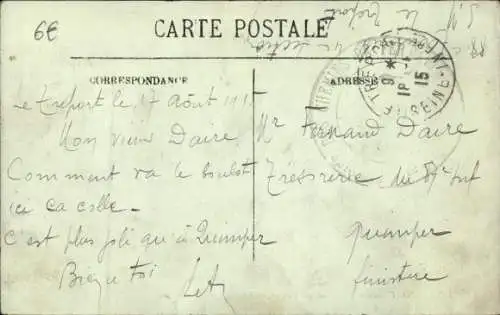 6€
CARTE POSTALE
Le Tréport
CORRESPONDANCE
ADRESSE
CHEMINS
LE TREPORT
9 * 18
15
SEINE-INF
Le Treport le 17 Août 1915
Mon vieux Daire
Comment va le boulot
ici ca colle -
C'est plus joli qu'à Quimper
Bien à toi
Mr Fernand Daire
Tresorerie du
Quimper
finistère